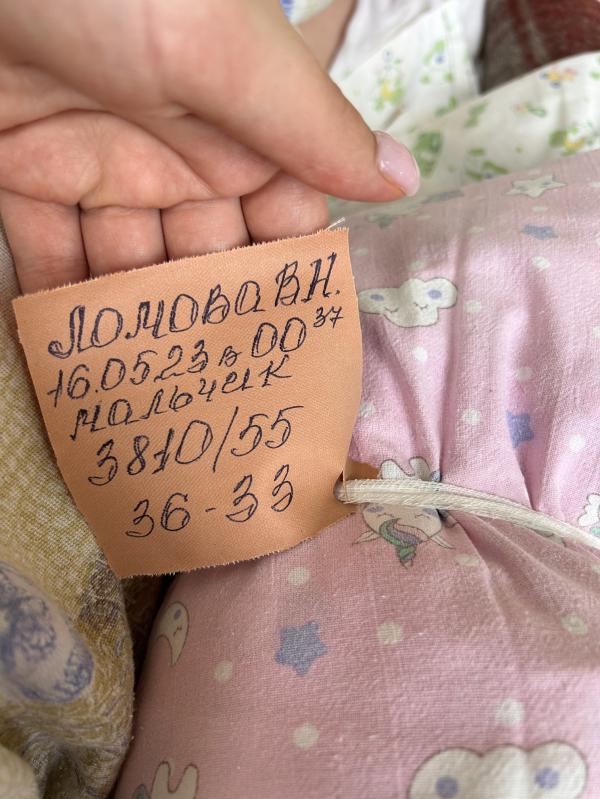 Ломова В.Н.
16.0523 в 00 37
мальчик
3810/55
36-33